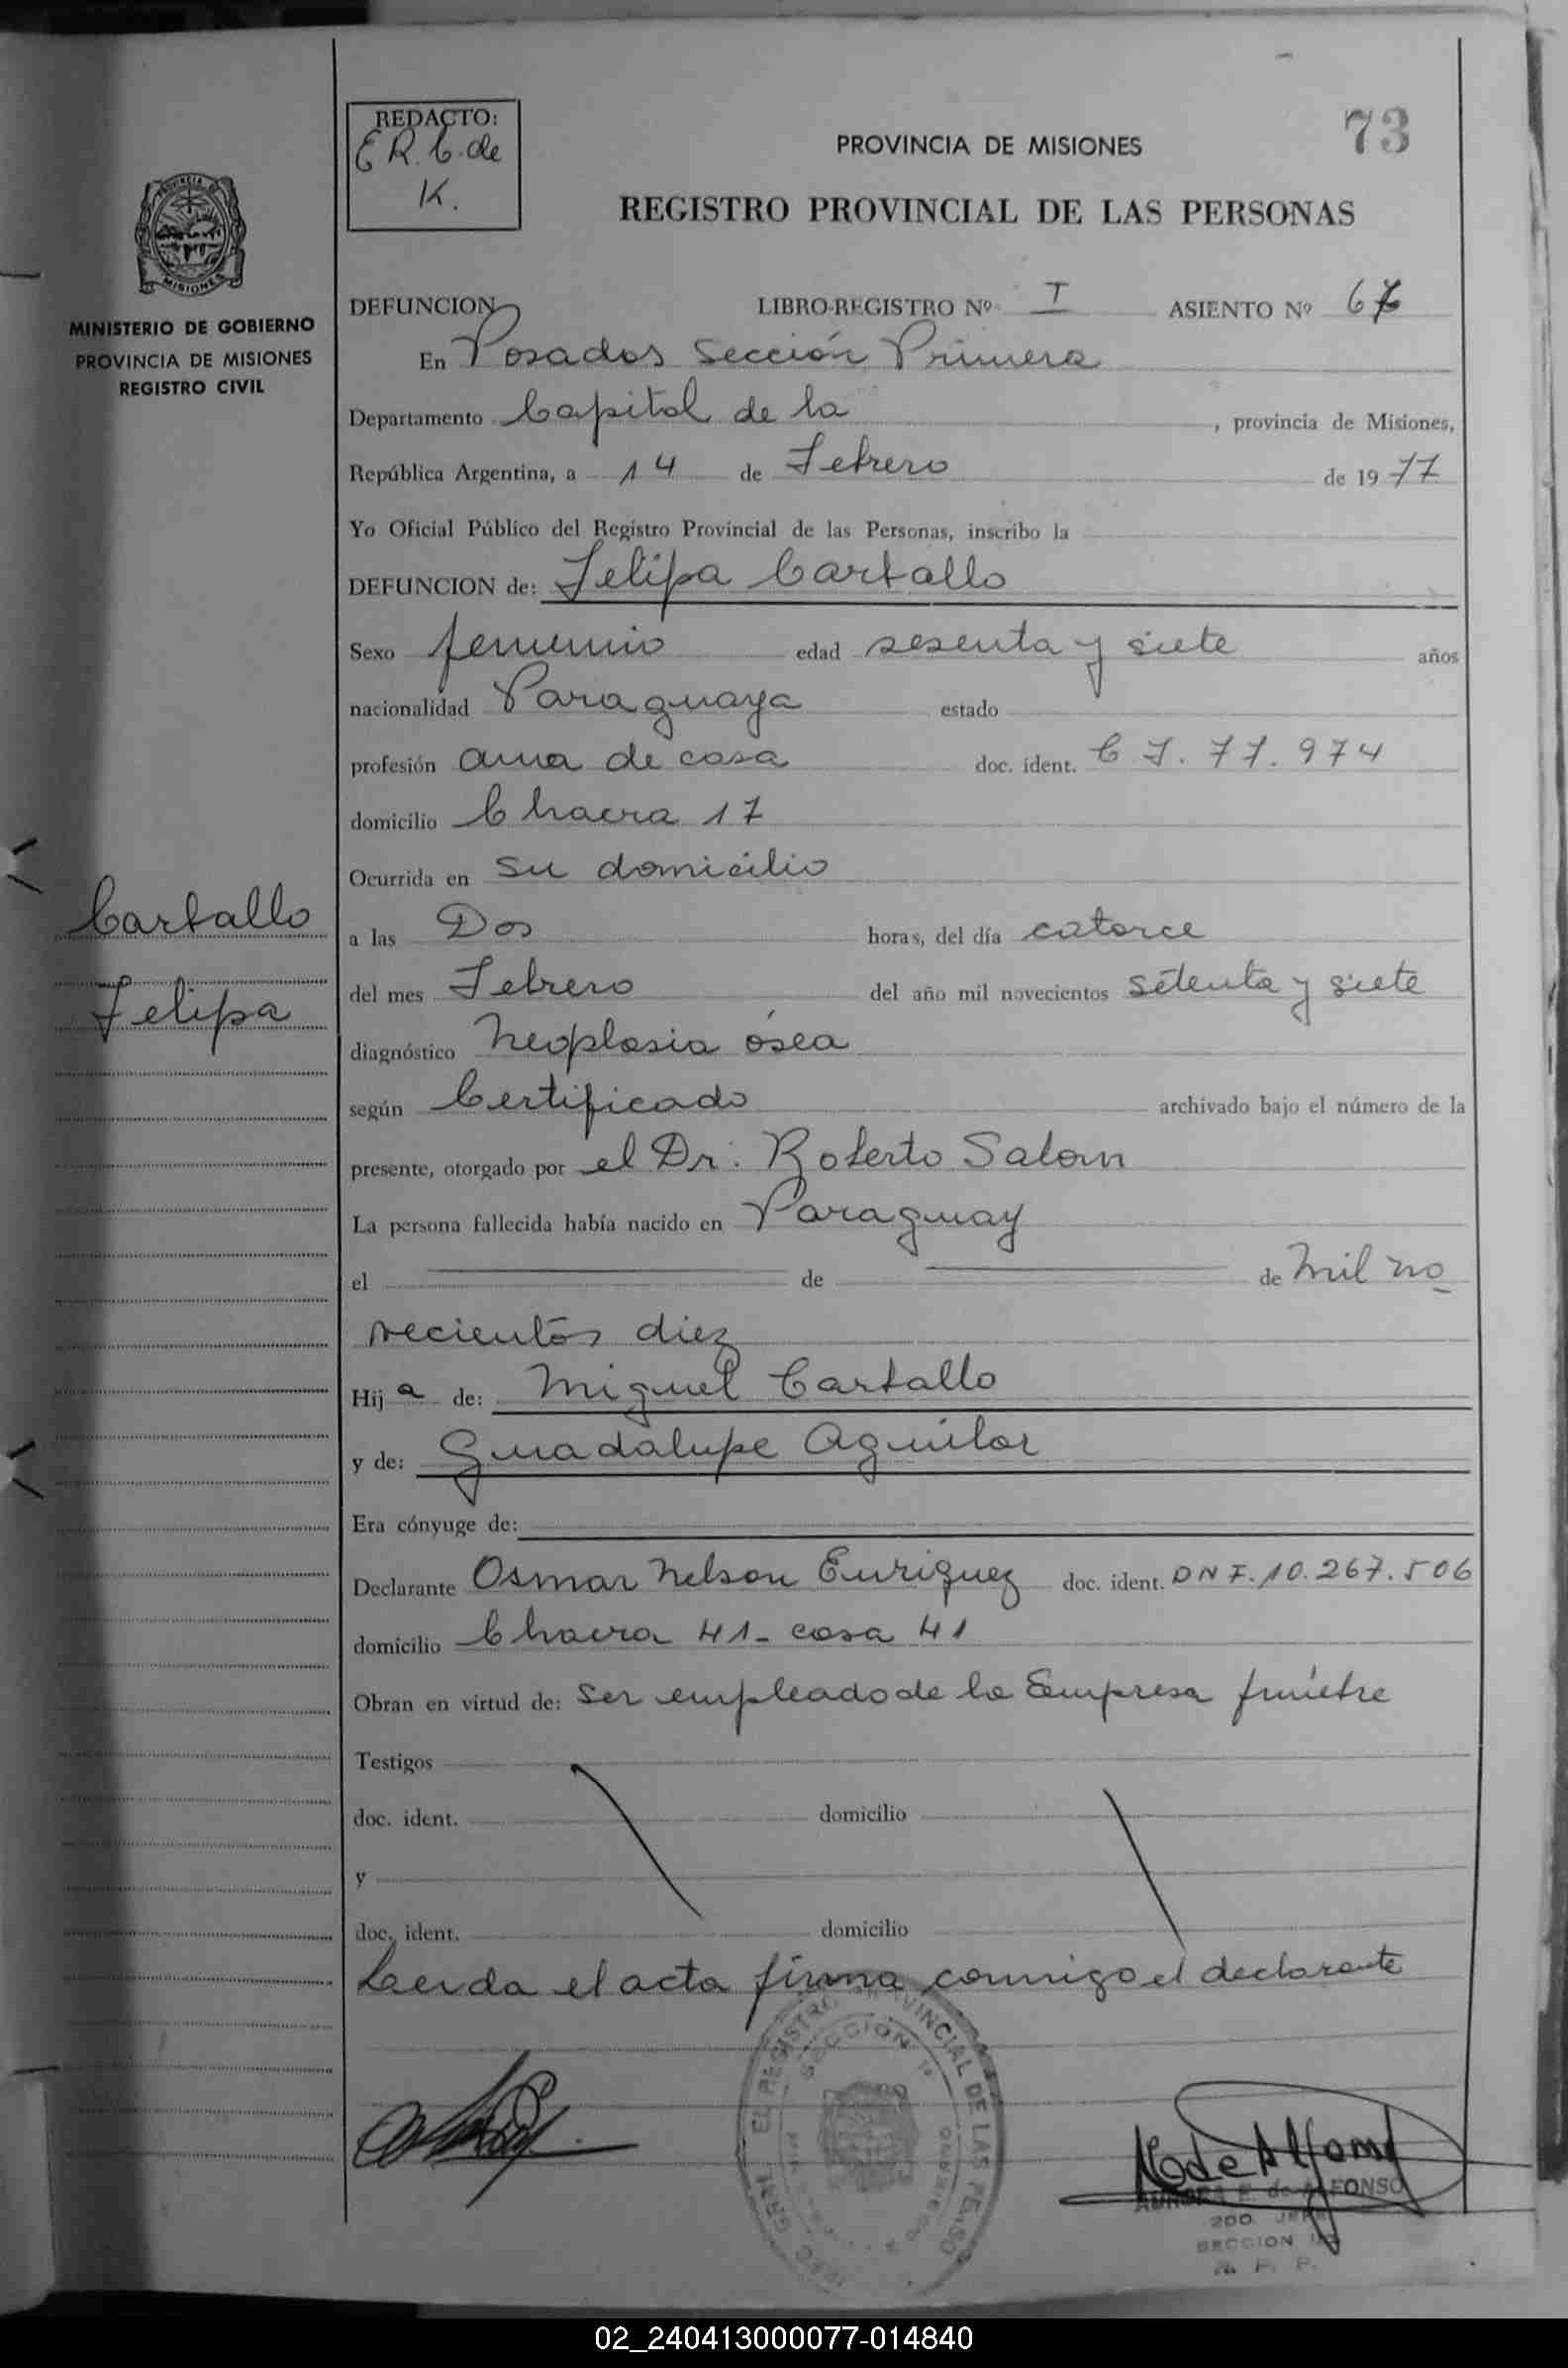 73
REDACTO:
E R. C. de
K.
PROVINCIA DE MISIONES
REGISTRO PROVINCIAL DE LAS PERSONAS
PROVINCIA DE
MISIONES
MINISTERIO DE GOBIERNO
PROVINCIA DE MISIONES
REGISTRO CIVIL
DEFUNCION LIBRO-REGISTRO Nº I ASIENTO Nº
En Posadas Sección Primera
Departamento Capital de la , provincia de Misiones,
República Argentina, a 14 de Febrero de 1977
Yo Oficial Público del Registro Provincial de las Personas, inscribo la
DEFUNCION de: Felipa Carballo
Sexo femenino edad sesenta y siete años
nacionalidad Paraguaya estado
profesión ama de casa doc. ident. C I. 77.974
domicilio Chacra 17
Ocurrida en su domicilio
Carballo
Felipa
a las Dos horas, del día catorce
del mes Febrero del año mil novecientos setenta y siete
diagnóstico Neoplasia ósea
según Certificado archivado bajo el número de la
presente, otorgado por el Dr. Roberto
La persona fallecida había nacido en Paraguay
el de de Mil no
vecientos diez
Hija de: Miguel Carballo
y de: Guadalupe Aguilar
Era cónyuge de:
Declarante Osmar Nelson Enriquez doc. ident. DNI. 10.267.506
domicilio Chacra 41- casa 41
Obran en virtud de: Ser empleado de la Empresa fúnebre
Testigos
doc. ident. domicilio
y
doc. ident. domicilio
Leida el acta firma conmigo el declarante
REGISTRO PROVINCIAL DE LAS PERSO
SECCION 1ª
AURORA E. de ALFONSO
2DO. JEFE
SECCION 1ª
R. P. P.
02_240413000077-014840